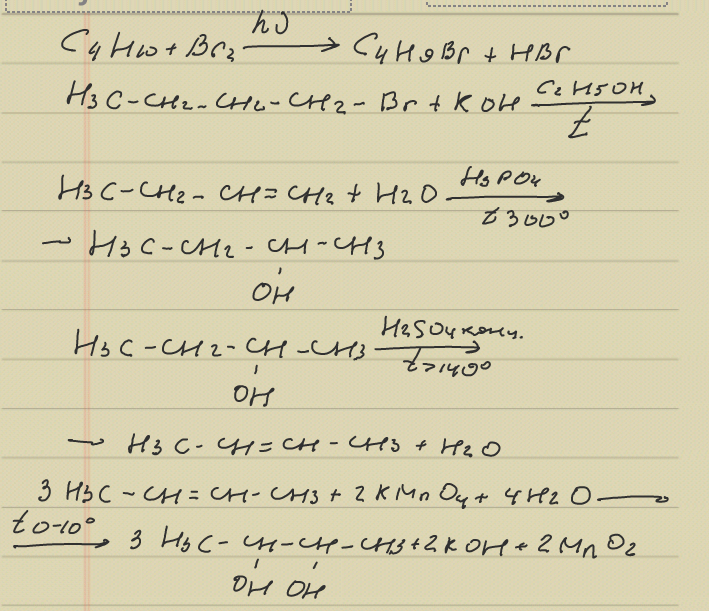 C4H10 + Br2 hν→ C4H9Br + HBr
H3C-CH2-CH2-CH2-Br + KOH C2H5OH→ t
H3C-CH2-CH=CH2 + H2O H3PO4→ t 300°
→ H3C-CH2-CH-CH3
OH
H3C-CH2-CH-CH3 H2SO4 конц.→ t>140°
OH
→ H3C-CH=CH-CH3 + H2O
3 H3C-CH=CH-CH3 + 2KMnO4 + 4H2O →
t 0-10°→ 3 H3C-CH-CH-CH3 + 2KOH + 2MnO2
OH OH